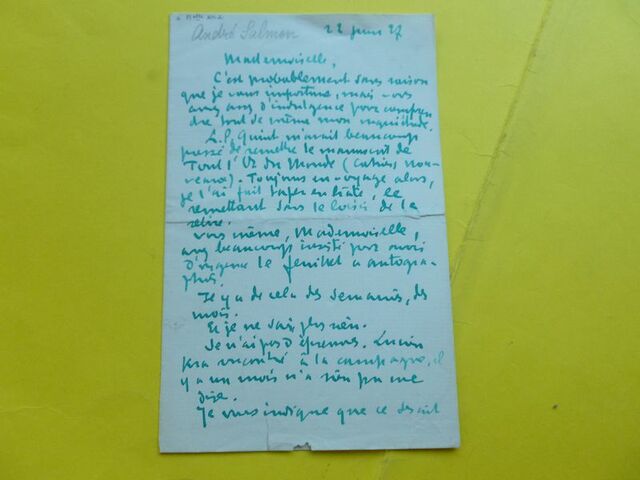 André Salmon
22 juin 27
Mademoiselle,
C'est probablement sans raison
que je vous importune, mais vous
avez assez d'indulgence pour compren
dre tout de même mon inquiétude.
L.P. Quint m'avait beaucoup
pressé de remettre le manuscrit de
Tout l'Or du Monde (Cahiers nou-
veaux). Toujours en voyage alors,
je l'ai fait taper en hâte, le
remettant sans le loisir de le
relire.
Vous même, Mademoiselle,
avez beaucoup insisté pour avoir
d'urgence le feuillet à autogra-
phier.
Il y a de cela des semaines, des
mois.
Et je ne sais plus rien.
Je n'ai pas d'épreuves. Lucien
Kra rencontré à la campagne, il
y a un mois n'a rien pu me
dire.
Je vous indique que ce serait